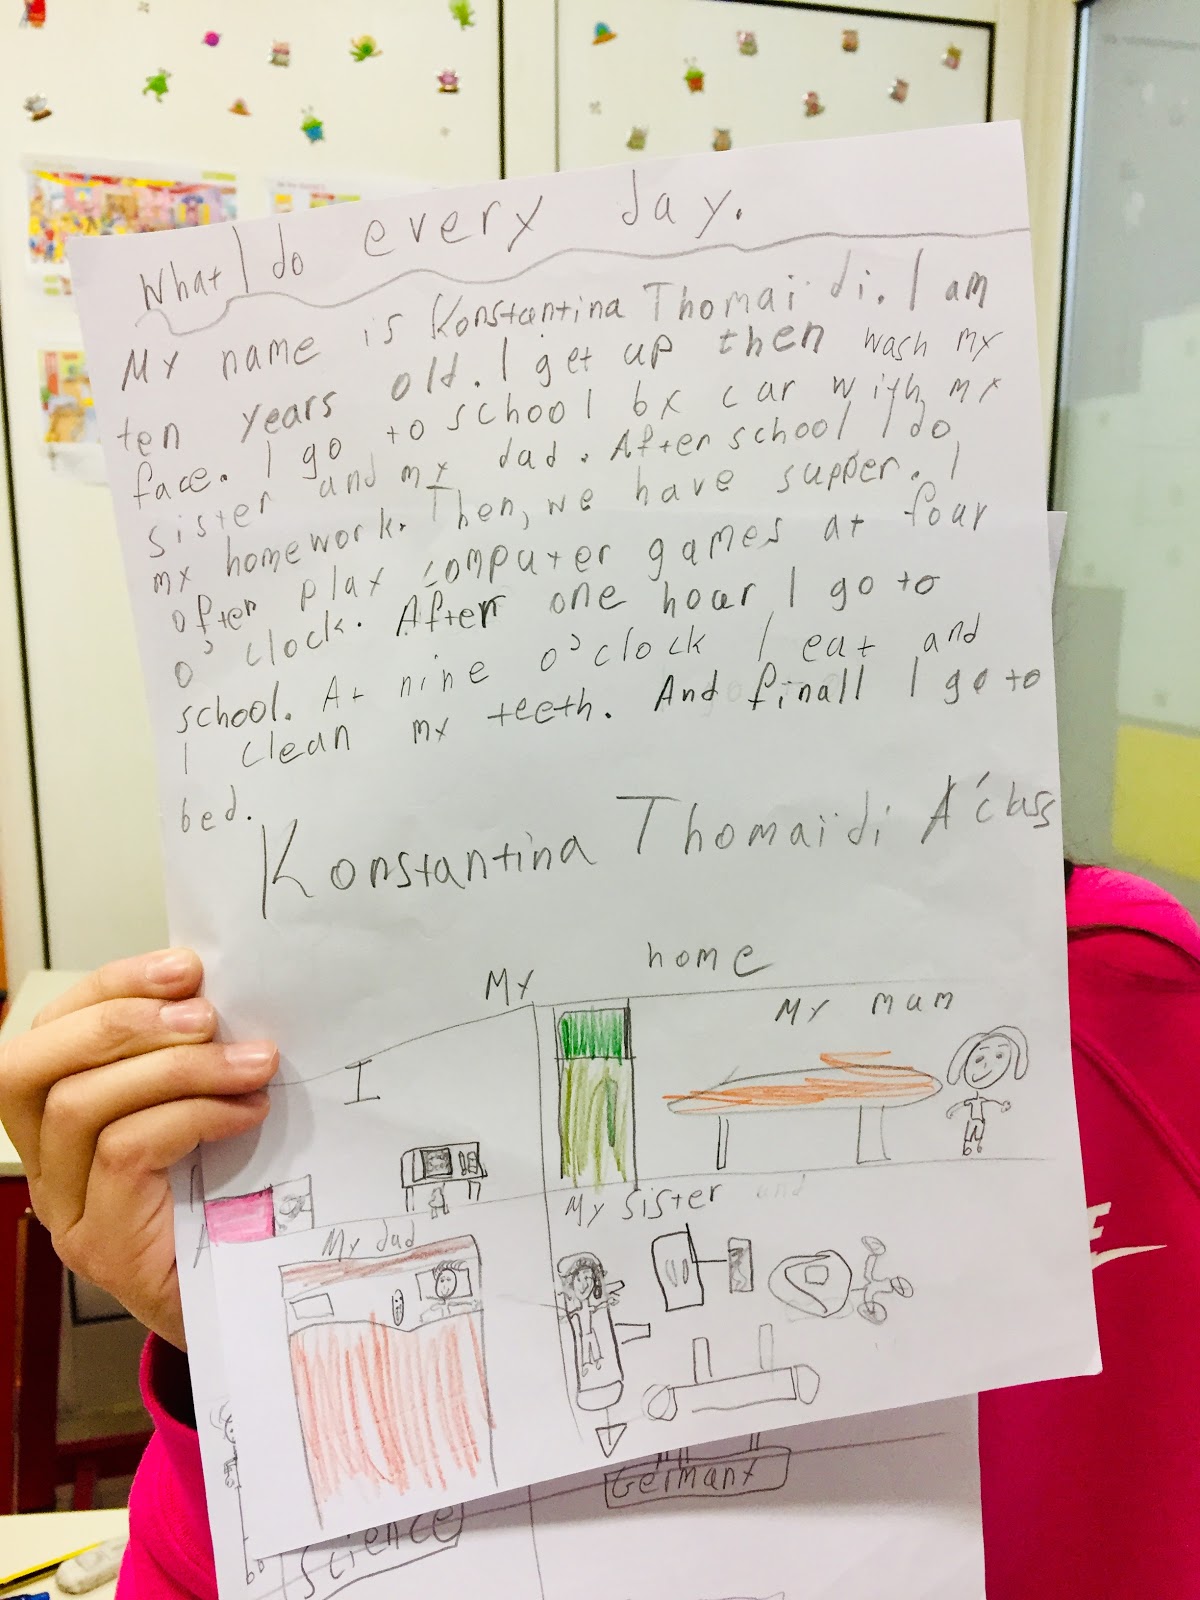 What I do every day.
My name is Konstantina Thomaïdi. I am
ten years old. I get up then wash my
face. I go to school by car with my
sister and my dad. After school I do
my homework. Then, we have supper. I
often play computer games at four
o'clock. After one hour I go to
school. At nine o'clock I eat and
I clean my teeth. And finall I go to
bed.
Konstantina Thomaïdi A'class
My home
I
My mum
My dad
My sister and
Germany
Science